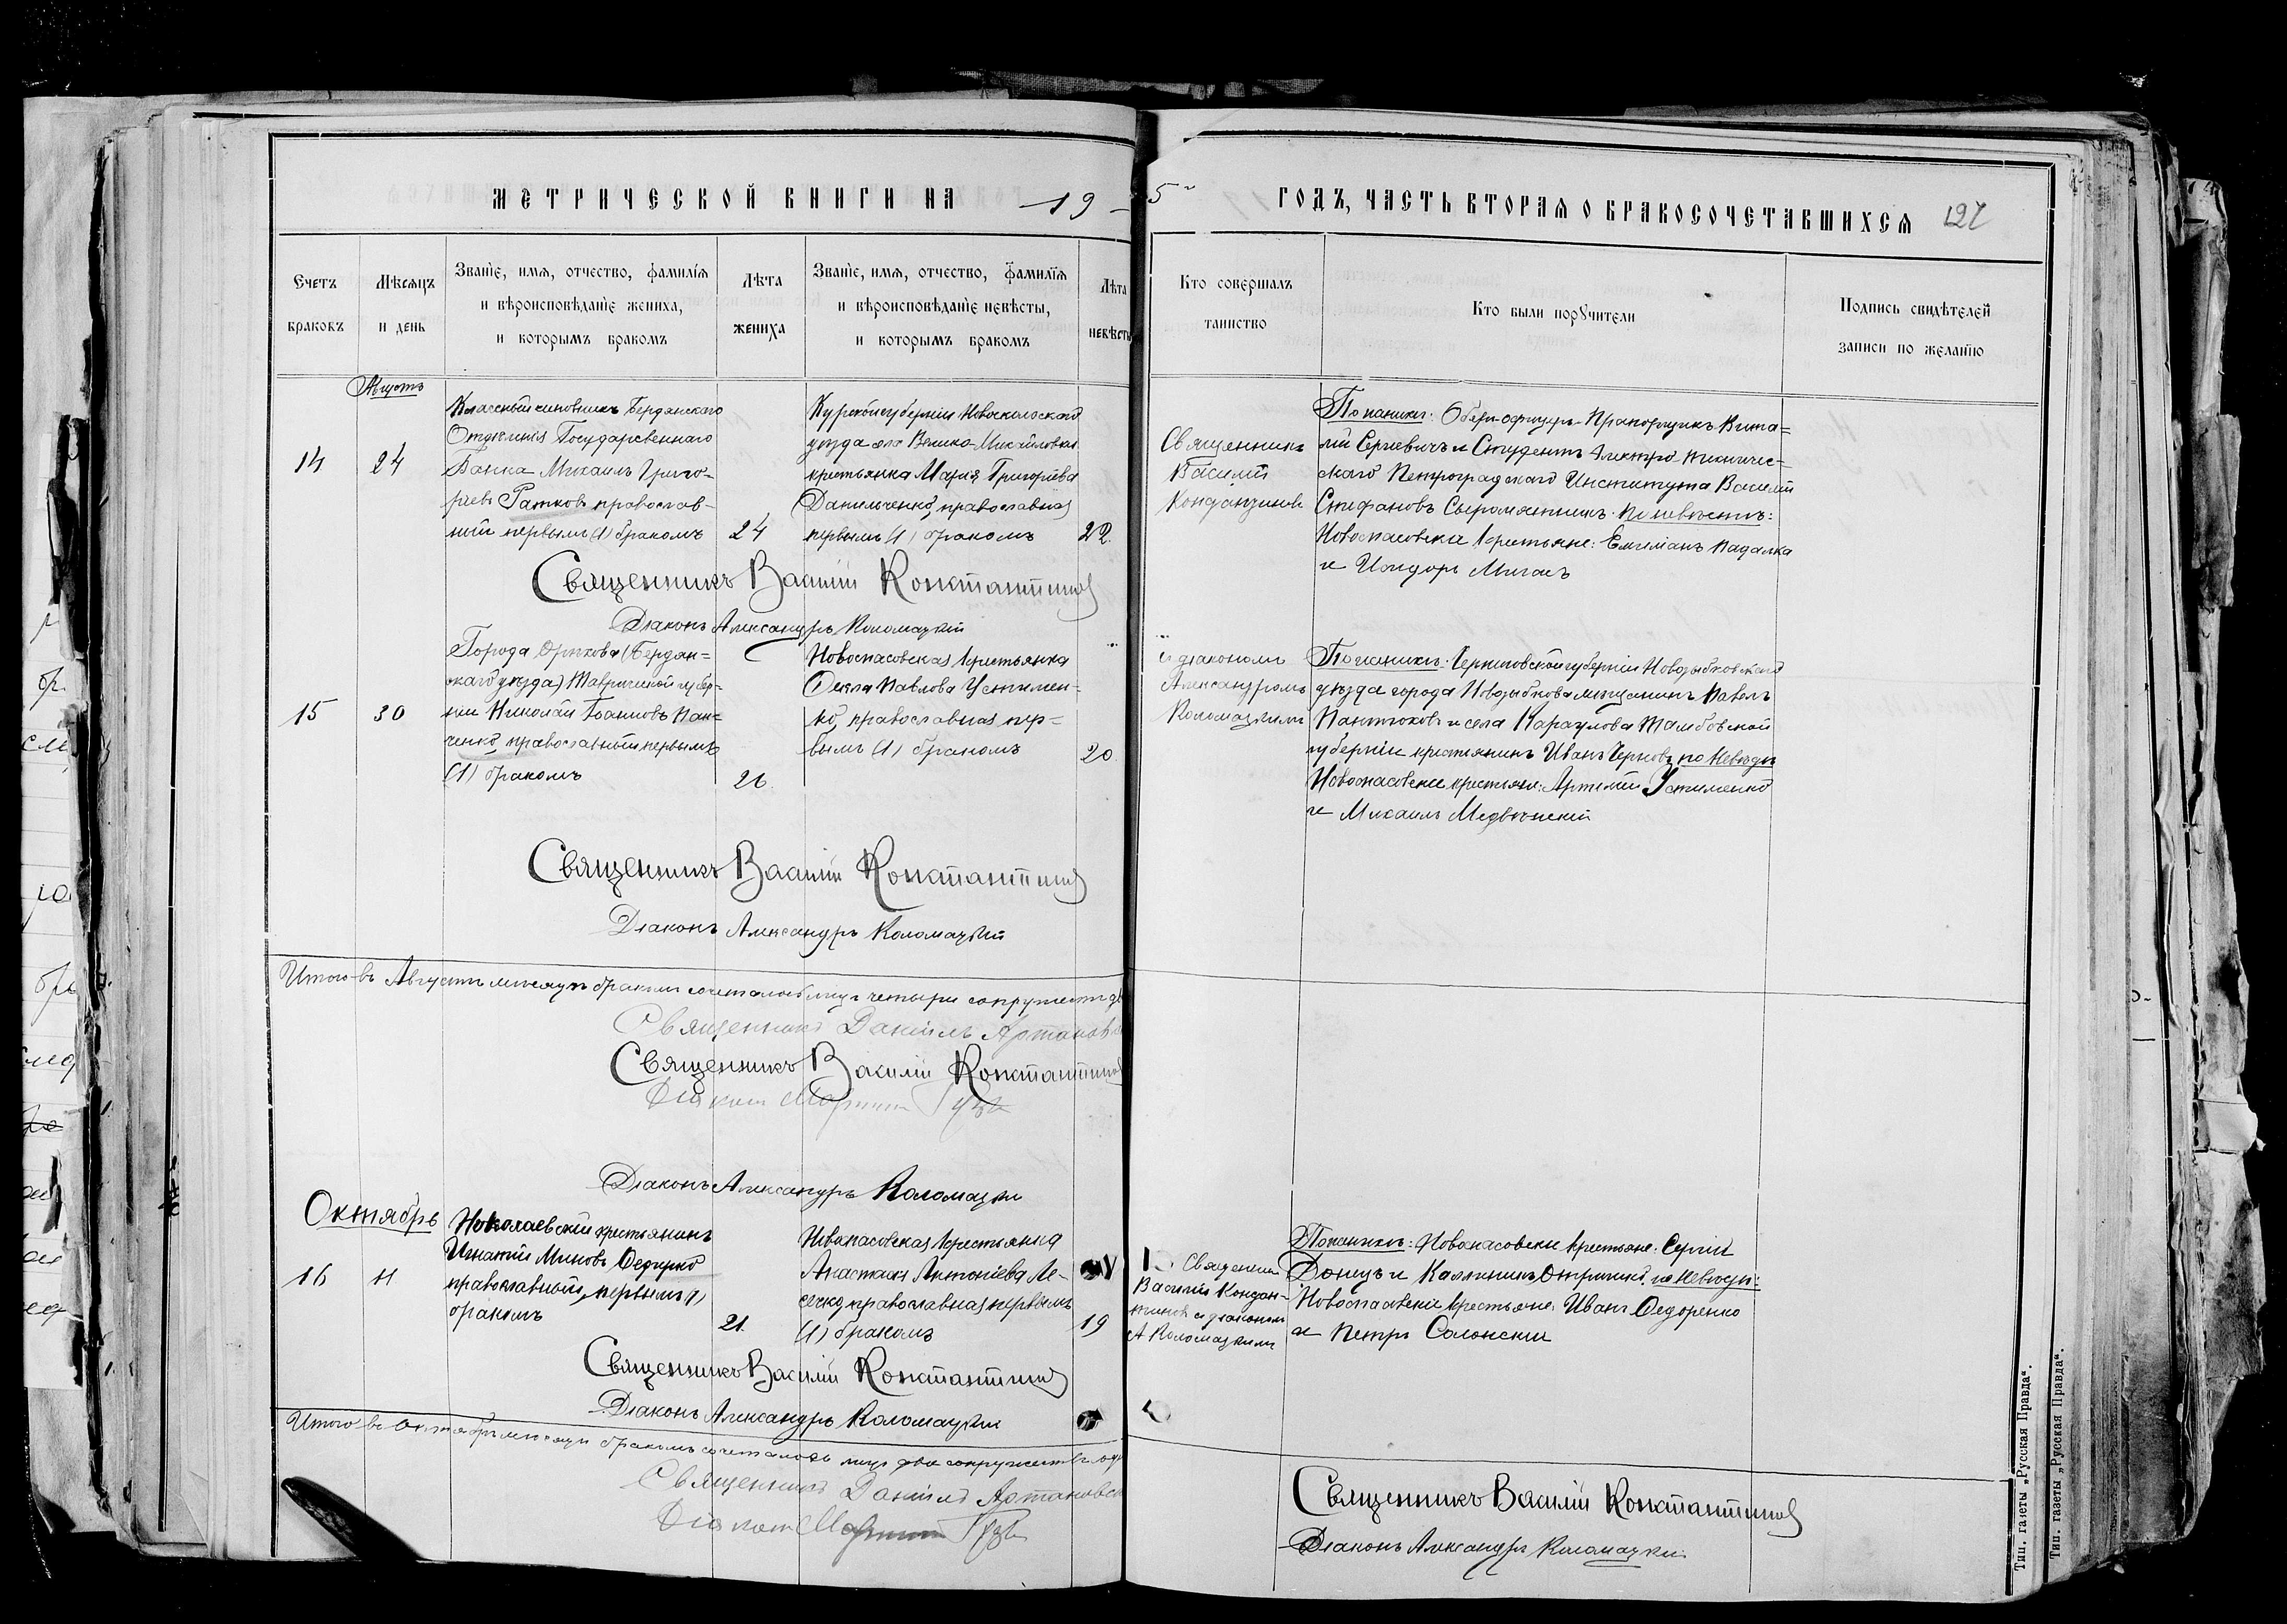 МЕТРИЧЕСКОЙ КНИГИ НА 19
5 ГОДЪ, ЧАСТЬ ВТОРАЯ О БРАКОСОЧЕТАВШИХСЯ
Счетъ браковъ
Мѣсяцъ и день
Званіе, имя, отчество, фамилія
и вѣроисповѣданіе жениха,
и которымъ бракомъ
Лѣта
жениха
Званіе, имя, отчество, фамилія
и вѣроисповѣданіе невѣсты,
и которымъ бракомъ
Лѣта
невѣсты
Кто совершалъ
таинство
Кто были поручители
Подпись свидѣтелей
записи по желанію
Августъ
14
24
Классный чиновникъ Бердянскаго
Отдѣленія Государственнаго
Банка Михаилъ Григо-
рьевъ Ратковъ православ-
ный первымъ (1) бракомъ
24
Курской губерніи Новооскольскаго
уѣзда села Велико-Михайловки
крестьянка Марія Григоріева
Данильченко, православная
первымъ (1) бракомъ
22.
Священникъ
Василій
Константиновъ
По женихѣ: Оберъ-офицеръ-Прапорщикъ Вита=
лій Сергіевичъ и Студентъ Электро-техничес-
скаго Петроградскаго Института Василій
Стефановъ Сыромятниковъ. По невѣстѣ:
Новоспасовскіе крестьяне: Емиліанъ Падалка
и Исидоръ Мигаль
Священникъ Василій Константиновъ
Діаконъ Александръ Коломацкій
15
30
Города Орѣхова (Бердян=
скаго уѣзда) Таврической губер-
ніи Николай Іоанновъ Пан=
ченко, православный первымъ
(1) бракомъ
26.
Новоспасовская крестьянка
Фекла Павлова Устимен-
ко, православная пер-
вымъ (1) бракомъ
20
и діакономъ
Александромъ
Коломацкимъ
По женихѣ: Черниговской губерніи Новозыбковскаго
уѣзда города Новозыбкова мѣщанинъ Павелъ
Пантюховъ и села Караулова Тамбовской
губерніи крестьянинъ Иванъ Черновъ, по невѣстѣ
Новоспасовскіе крестьяне: Артемій Устименко
и Михаилъ Медвѣнскій
Священникъ Василій Константиновъ
Діаконъ Александръ Коломацкій
Итого въ Августѣ мѣсяцѣ бракомъ сочеталось лицъ четыре супружествъ
Священникъ Даніилъ
Священникъ Василій Константиновъ
Діаконъ
Діаконъ Александръ Коломацкій
Октябрь
16
11
Николаевскій крестьянинъ
Игнатій Миновъ Федирко
православный, первымъ (1)
бракомъ
21.
Новоспасовская крестьянка
Анастасія Антоніева Ле-
сечко, православная первымъ
(1) бракомъ
19
Священникъ
Василій Констан-
тиновъ и діакономъ
А Коломацкимъ
По женихѣ: Новоспасовскіе крестьяне: Сергій
Донецъ и Каллиникъ по невѣстѣ:
Новоспасовскіе крестьяне: Иванъ Федоренко
и Петръ Солонскій
Священникъ Василій Константиновъ
Діаконъ Александръ Коломацкій
Итого въ Октябрѣ мѣсяцѣ бракомъ сочеталось лицъ два супружествъ
Священникъ Даніилъ
Діаконъ
Священникъ Василій Константиновъ
Діаконъ Александръ Коломацкій
Тип. газеты „Русская Правда“.
Тип. газеты „Русская Правда“.